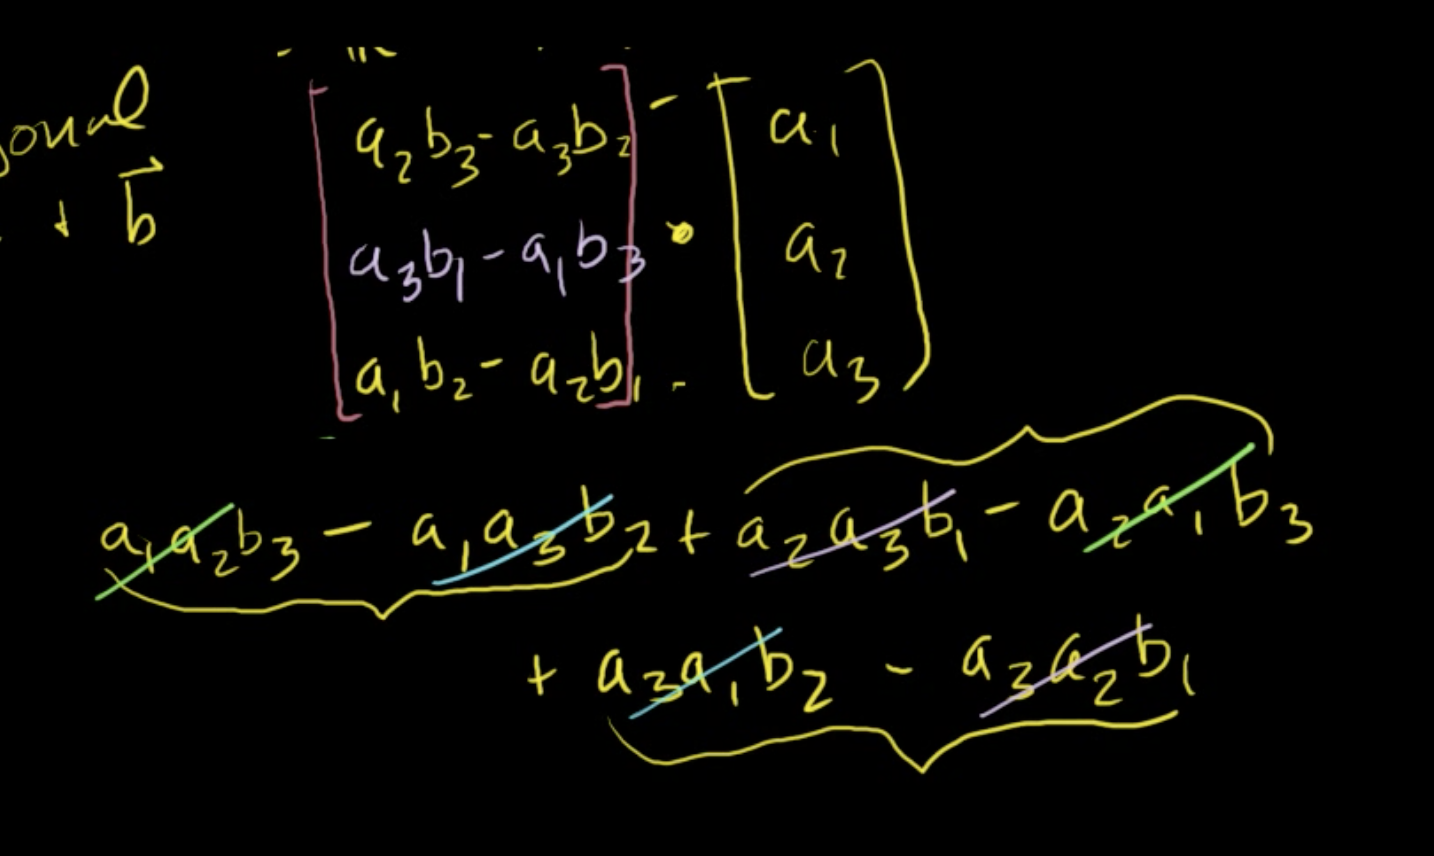 b⃗
a₂b₃ - a₃b₂ a₁
a₃b₁ - a₁b₃ • a₂
a₁b₂ - a₂b₁ a₃
a₁a₂b₃ - a₁a₃b₂ + a₂a₃b₁ - a₂a₁b₃
+ a₃a₁b₂ - a₃a₂b₁